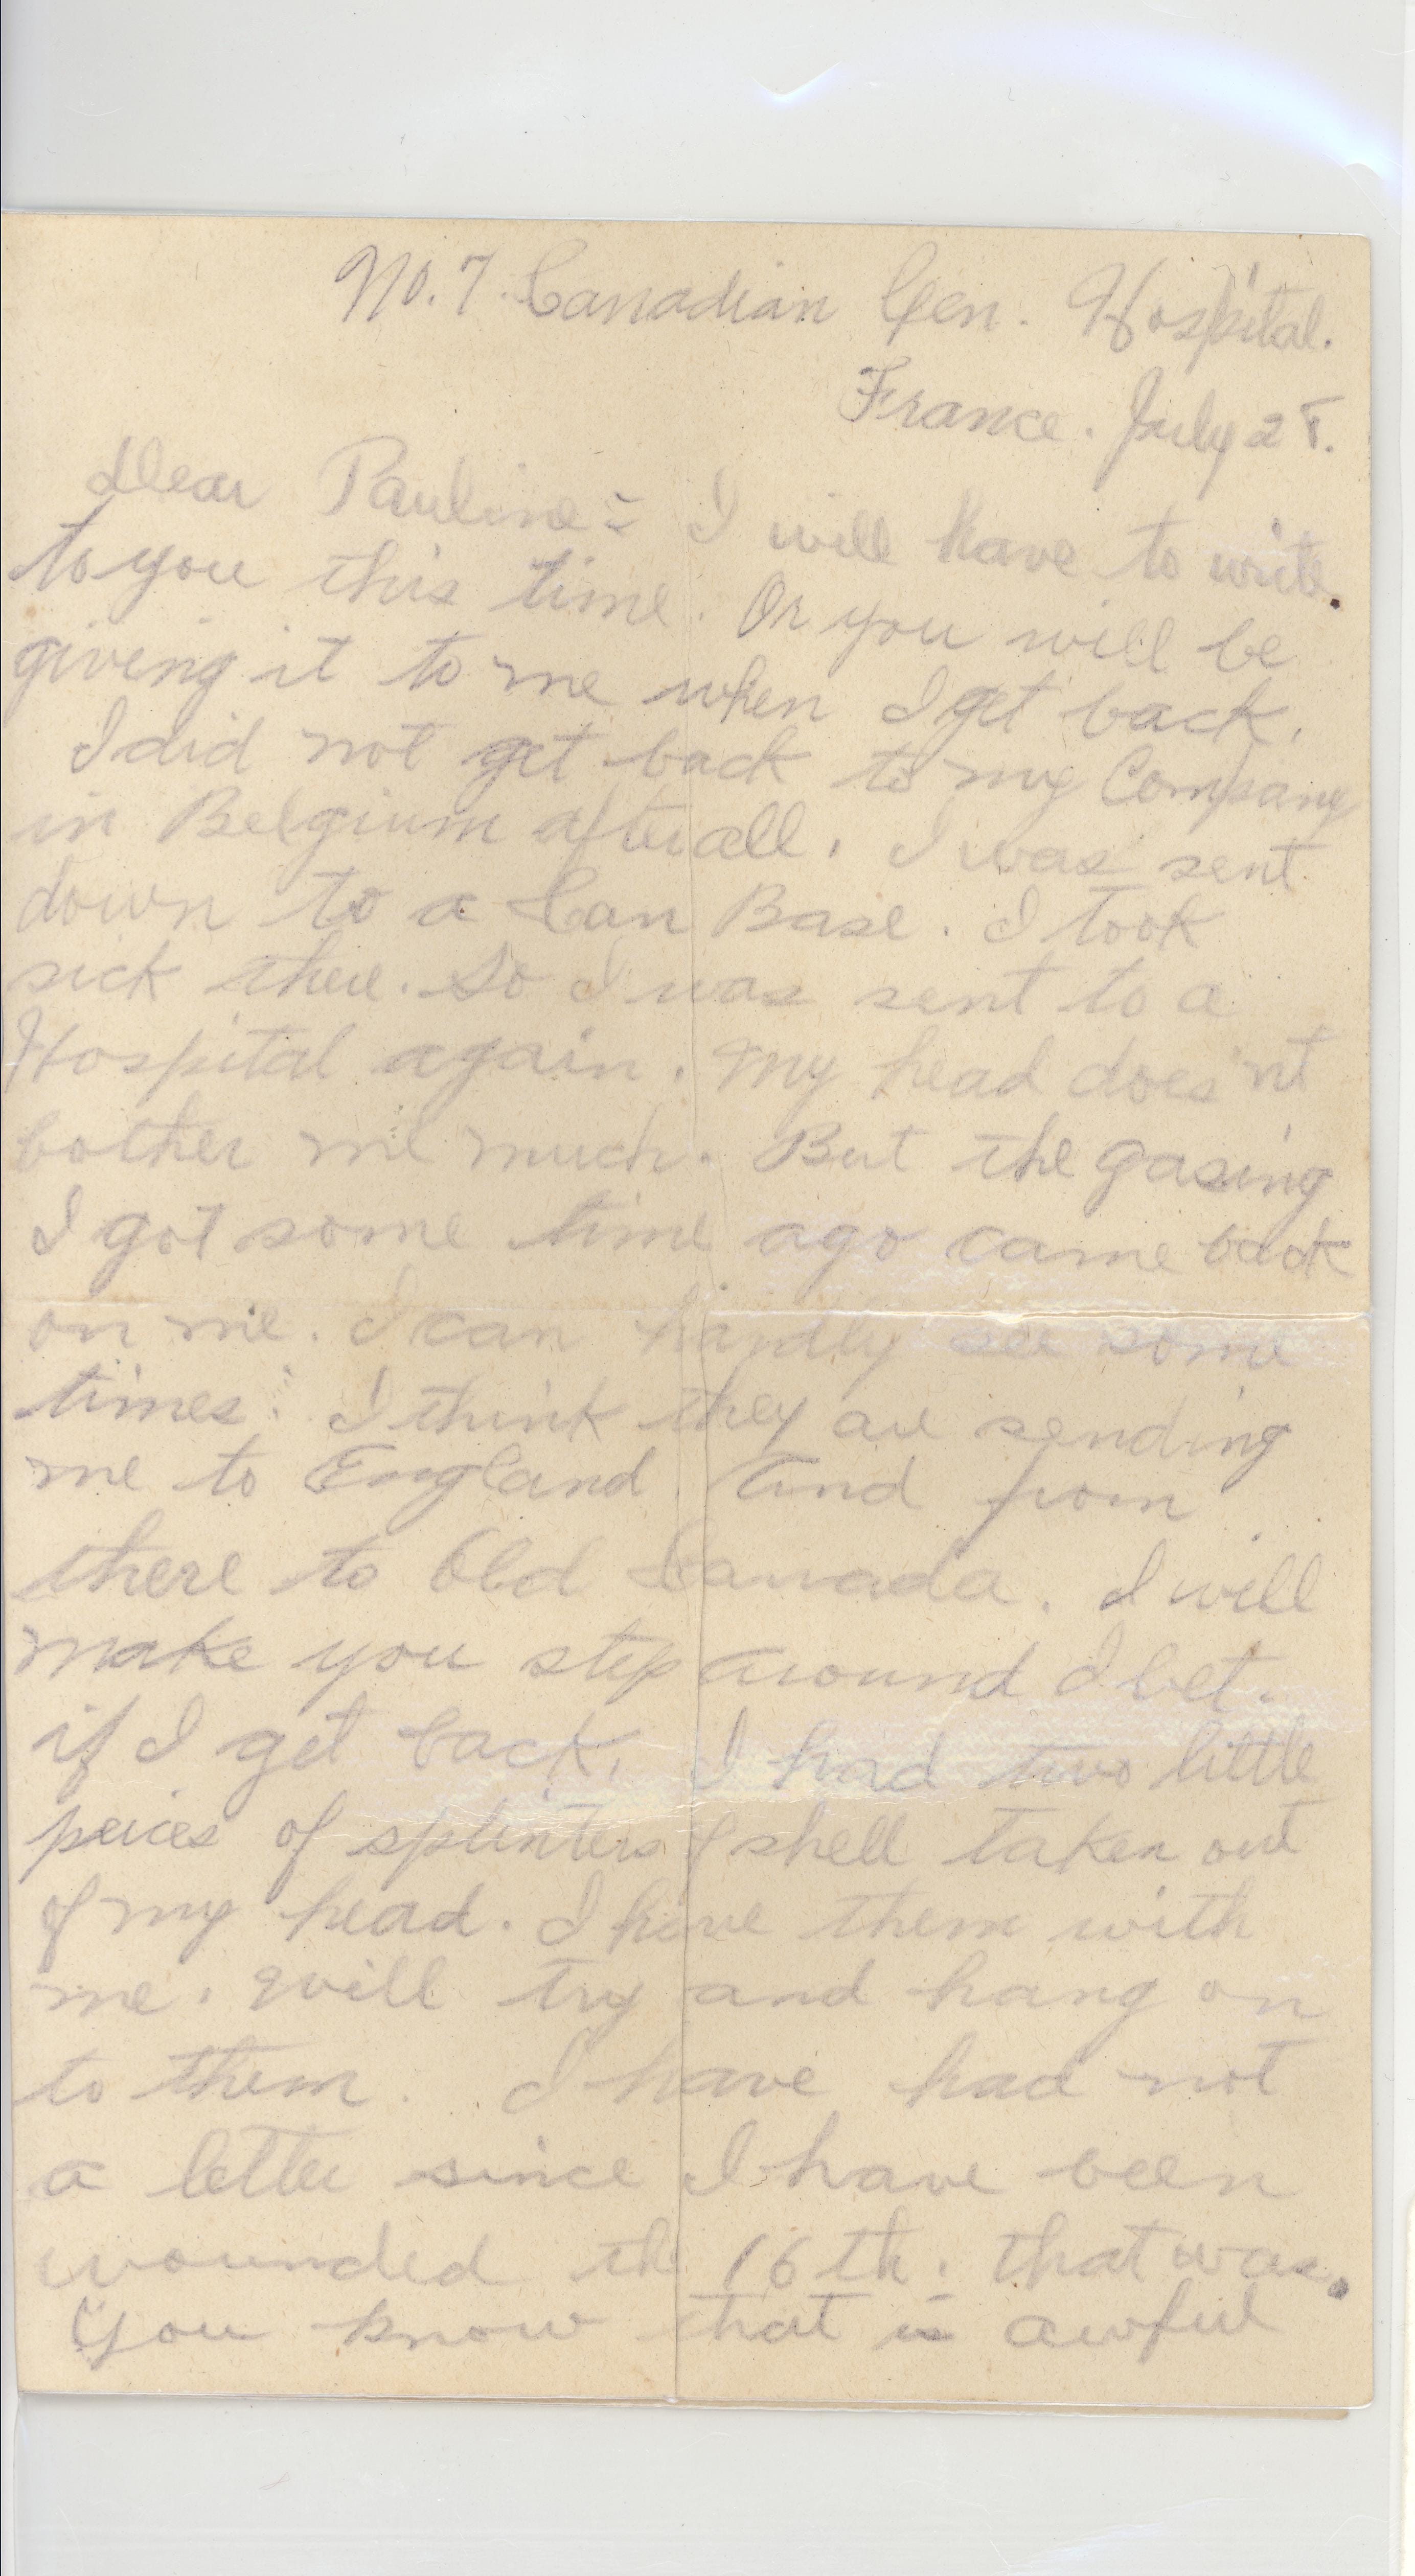 No. 7. Canadian Gen. Hospital.
France. July 28.
Dear Pauline = I will have to write
to you this time. Or you will be
giving it to me when I get back.
I did not get back to my Company
in Belgium after all. I was sent
down to a Can Base. I took
sick there. So I was sent to a
Hospital again. My head does'nt
bother me much. But the gasing
I got some time ago came back
on me. I can hardly see some
times. I think they are sending
me to England And from
there to Old Canada. I will
make you step around I bet.
if I get back. I had two little
peices of splinters of shell taken out
of my head. I have them with
me. Will try and hang on
to them. I have had not
a letter since I have been
wounded the 16th. that was.
You know that is awful